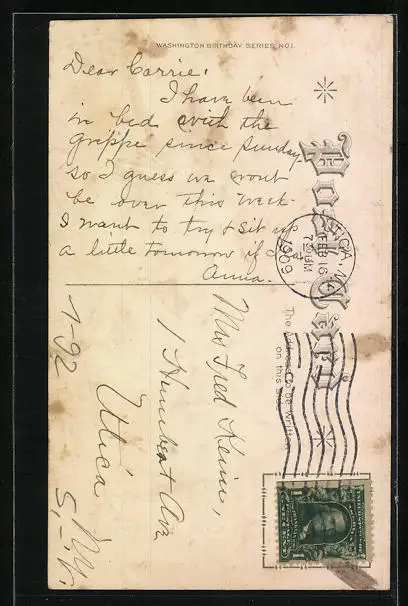 WASHINGTON BIRTHDAY SERIES NO1.
Dear Carrie:
I have been
in bed with the
grippe since Sunday
so I guess we wont
be over this week.
I want to try & sit up
a little tomorrow if I
Anna.
Post Card
UTICA, N.Y.
FEB 16
1909
The Address to be written
on this side
Mrs Fred Heim,
1 Humbert Ave
Utica
N.Y.
1-92